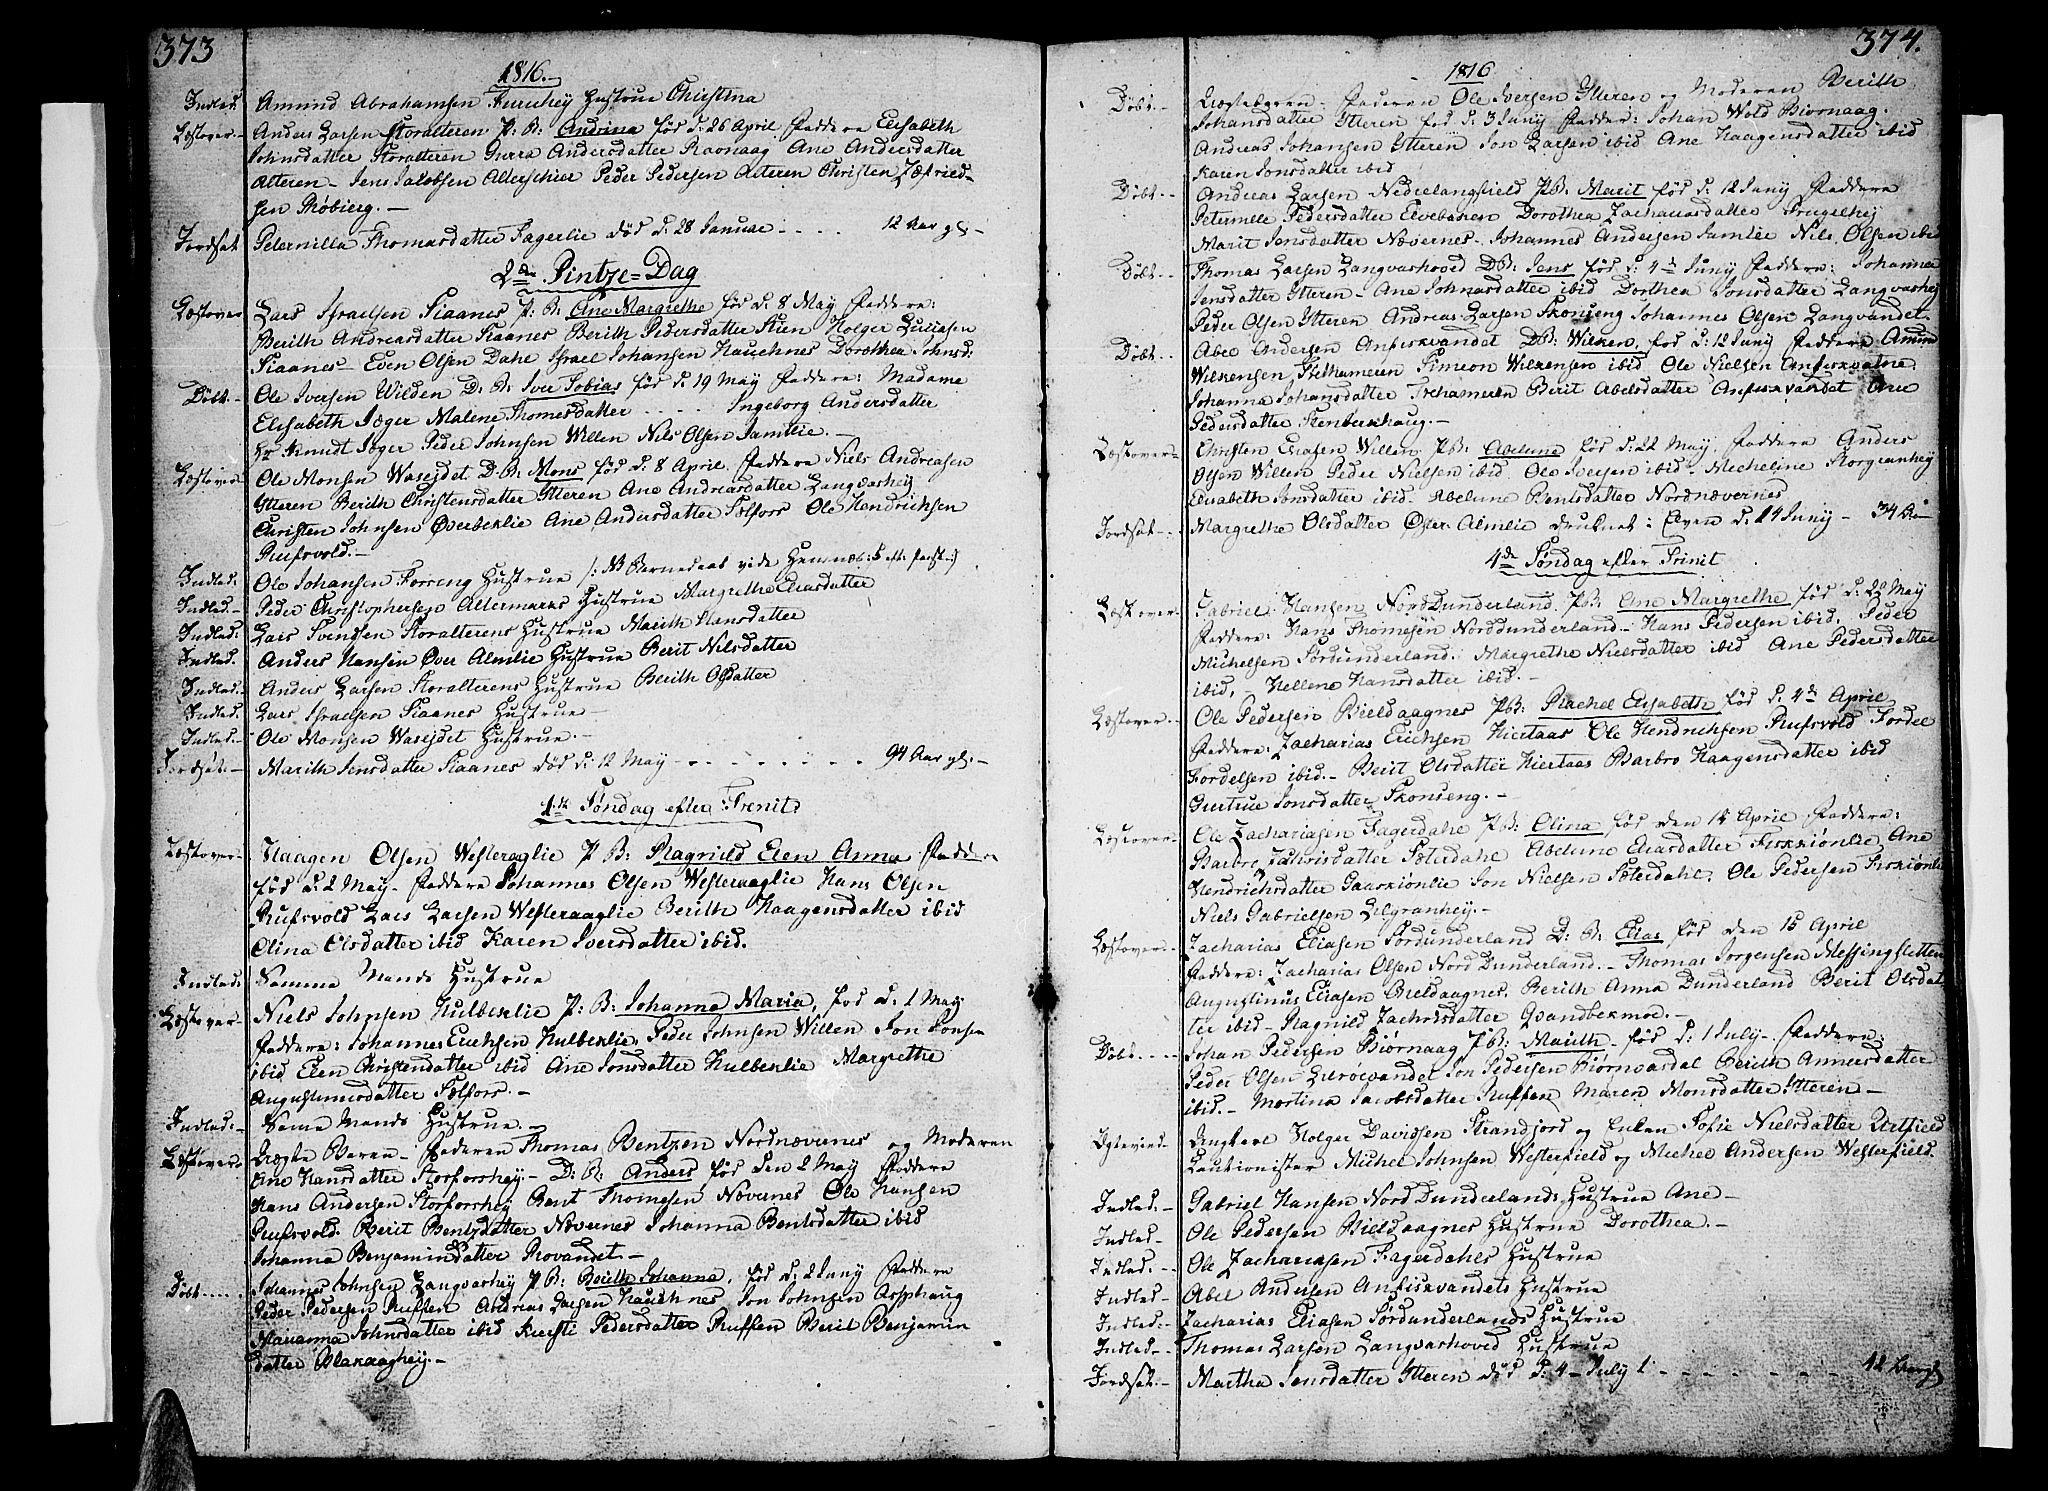 373
1816.-
Indled. Amund Abrahamsen Furuhey Hustrue Christina
Læstover- Anders Larsen Storalteren P: B: Andrina fød d: 26 April Faddere Elisabeth
Johnsdatter Storalteren Andersdatter Ravnaag Ane Andersdatter
Alteren- Jens Jacobsen Peder Pedersen Alteren Christen
sen
Jordsat Peternilla Thomasdatter Fagerlie død d: 28 Januar - - - - 12 Aar gl-
2den Pintze=Dag
Læstover Lars Israelsen Siaanes P: B: Ane Margrethe fød d: 8 May Faddere:
Berith Andreasdatter Siaanes Berith Pedersdatter Stien Holger
Siaanes- Even Olsen Dahl Israel Johansen Dorothea Johnsd:
Døbt- Ole Iversen Wilden D. B: Iver Tobias fød d: 19 May Faddere: Madame
Elisabeth Jæger Malene Thomesdatter - - - - Ingeborg Andersdatter
Hr Knudt Jæger Peder Johnsen Willen Nils Olsen Familie.-
Læstover Ole Monsen Wasejdet D. B: Mons fød d: 8 April Faddere Niels Andreasen
Ytteren Berith Christensdatter Ytteren Ane Andreasdatter Langvashey
Christen Johnsen Overbeklie Ane Andersdatter Sølfors Ole Hendrichsen
Rufsvold.-
Indled. Ole Johansen Forreng Hustrue /: NB Barnedaab vide
Indled.- Peder Christophersen Altermarks Hustrue Margrethe Eliasdatter
Indled: Lars Svendsen Storalterens Hustrue Marith Hansdatter
Indled. Anders Hansen Over Almlie Hustrue Berit Nilsdatter
Indled.- Anders Larsen Storalterens Hustrue Berith Olsdatter
Indled. Lars Israelsen Siaanes Hustrue-
Indled.- Ole Monsen Wasejdet Hustrue.-
Jordsat- Marith Jensdatter Siaanes død d: 12 May - - - - - - 94 Aar gl:-
1ste Søndag efter Trenit:
Læstover- Haagen Olsen Westeraaglie P B: Ragnild Elen Anna
fød d: 2 May- Faddere Johannes Olsen Westeraaglie Hans Olsen
Rufsvold Lars Larsen Westeraaglie Berith Haagensdatter ibid
Olina Olsdatter ibid Karen Iversdatter ibid.
Indled: Samme Mands Hustrue
Læstover- Niels Johnsen Hulbeklie P: B: Johanna Maria, fød d: 1 May
Faddere: Johannes Erichsen Hulbeklie, Peder Johnsen Willen Jon Jonsen
ibid Elen Christensdatter ibid Ane Jonsdatter Hulbeklie Margrethe
Augustinusdatter Sølfors.-
Indled:- Samme Mands Hustrue.
Læstover- Uægte Barn- Faderen Thomas Bentzen Nordnævernes og Moderen
Ane Hansdatter Storforshey- D: B: Anders fød den 2 May Faddere
Hans Andersen Storforshey Bent Thomesen Nævernes Ole Hansen
Rufsvold. Berit Bentzdatter Nævernes Johanna Bentsdatter ibid
Johanna Benjaminsdatter Rovandet.-
Døbt.... Johannes Johnsen Langvashey P B: Berith Johanna, fød d: 2 Juny Faddere
Peder Pedersen Ruffen Andreas Larsen Jon Johnsen Asphaug
Marianna Johnsdatter ibid Kiersti Pedersdatter Ruffen Berit Benjamin
datter Blakaaghey.-
374.
1816
Døbt.- Faderen Ole Iversen Ytteren og Moderen Berith
Johansdatter Ytteren fød d: 3 Juny Faddere: Johan Wold Biornaag.
Andreas Johansen Ytteren Jon Larsen ibid Ane Haagensdatter ibid
Karen Jonsdatter ibid
Døbt.- Andreas Larsen Nedrelangfield PB: Marit fød d: 12 Juny Faddere
Petermelle Pedersdatter Elvebaken Dorothea Zachariasdatter
Marit Jensdatter Nævernes- Johannes Andersen Familie Nils Olsen ibid
Døbt.- Thomas Larsen Langvashoved D B: Jens fød d: 4de Juny Faddere: Johanna
Jensdatter Ytteren- Ane Johnasdatter ibid Dorthea Jonsdatter Langvashey
Peder Olsen Ytteren Andreas Larsen Skonseng Johannes Olsen Langvandet.
Døbt.- Abel Andersen Anfiskvandet D B: Wilken, fød d: 12 Juny Faddere Amun
Wilkensen Simeon Wilkensen ibid Ole Nielsen
Johanna Johansdatter Berit Abelsdatter Anfiskvandet Ane
Pedersdatter Stenbekhaug.-
Læstover- Christen Eliasen Willen P B: Abelune fød d: 22 May. Faddere Anders
Olsen Willen Peder Nielsen ibid Ole Iversen ibid, Micheline Storgranhey
Elisabeth Jonsdatter ibid. Abelune Bentsdatter Nordnævernes
Jordsat- Margrethe Olsdatter Øster Almlie druknet i Elven d: 14 Juny - 34
4de Søndag efter Trinit
Læstover- Gabriel Hansen NordDunderland, P B: Ane Margrethe fød d: 22 May
Faddere: Hans Thomesen Norddunderland- Hans Pedersen ibid, Peder
Michelsen Sørdunderland. Margrethe Nielsdatter ibid Ane Pedersdatter
ibid, Hellene Hansdatter ibid.-
Læstover- Ole Pedersen Bieldaagnes P B: Rachel Elisabeth fød d. 4de April
Faddere: Zacharias Erichsen Hiertaas Ole Hendrichsen Rufsvold Fordel
Fordelsen ibid.- Berit Olsdatter Hiertaas Barbro Haagensdatter ibid
Giertrue Jonsdatter Skonseng.-
Læstover- Ole Zachariasen Fagerdahl P B: Olina fød den 14 April Faddere:
Barbro Zachrisdatter Sæterdahl Abelune Eliasdatter Fiskkiønlie Ane
Hendrichsdatter Jon Nielsen Sæterdahl, Ole Pedersen
Niels Gabrielsen Lilgranhey.-
Læstover- Zacharias Eliasen Sørdunderland D: B: Elias fød den 15 April
Faddere: Zacharias Olsen Nord Dunderland.- Thomas Jorgensen Messingsletten
Augustinus Eliasen Bieldaagnes. Berith Anna Dunderland Berit Olsdat
ter ibid- Ragnild Zachrisdatter
Døbt.... Johan Pedersen Biørnaag P B: Marith- fød d: 1 July- Faddere:
Peder Olsen Jon Pedersen Biørnvasdal Berith Annersdatter
ibid.- Martina Jacobsdatter Ruffen, Maren Monsdatter Ytteren-
Ungkarl Holger Davidsen Strandjord og Enken Sofie Nielsdatter
Cautionister Michel Johnsen Westerfield og Michel Andersen Westerfield.
Indled.- Gabriel Hansen Nord Dunderlands Hustrue Ane-
Indled- Ole Pedersen Bieldaagnes Hustrue Dorothea.-
Indled.- Ole Zachariasen Fagerdahls Hustrue
Indled- Abel Andersen Anfiskvandets Hustrue
Indled.- Zacharias Eliasen Sørdunderlands Hustrue
Indled.- Thomas Larsen Langvashoved Hustrue
Jordsat.- Martha Jensdatter Ytteren død d: 4 - July - - - - - - 12